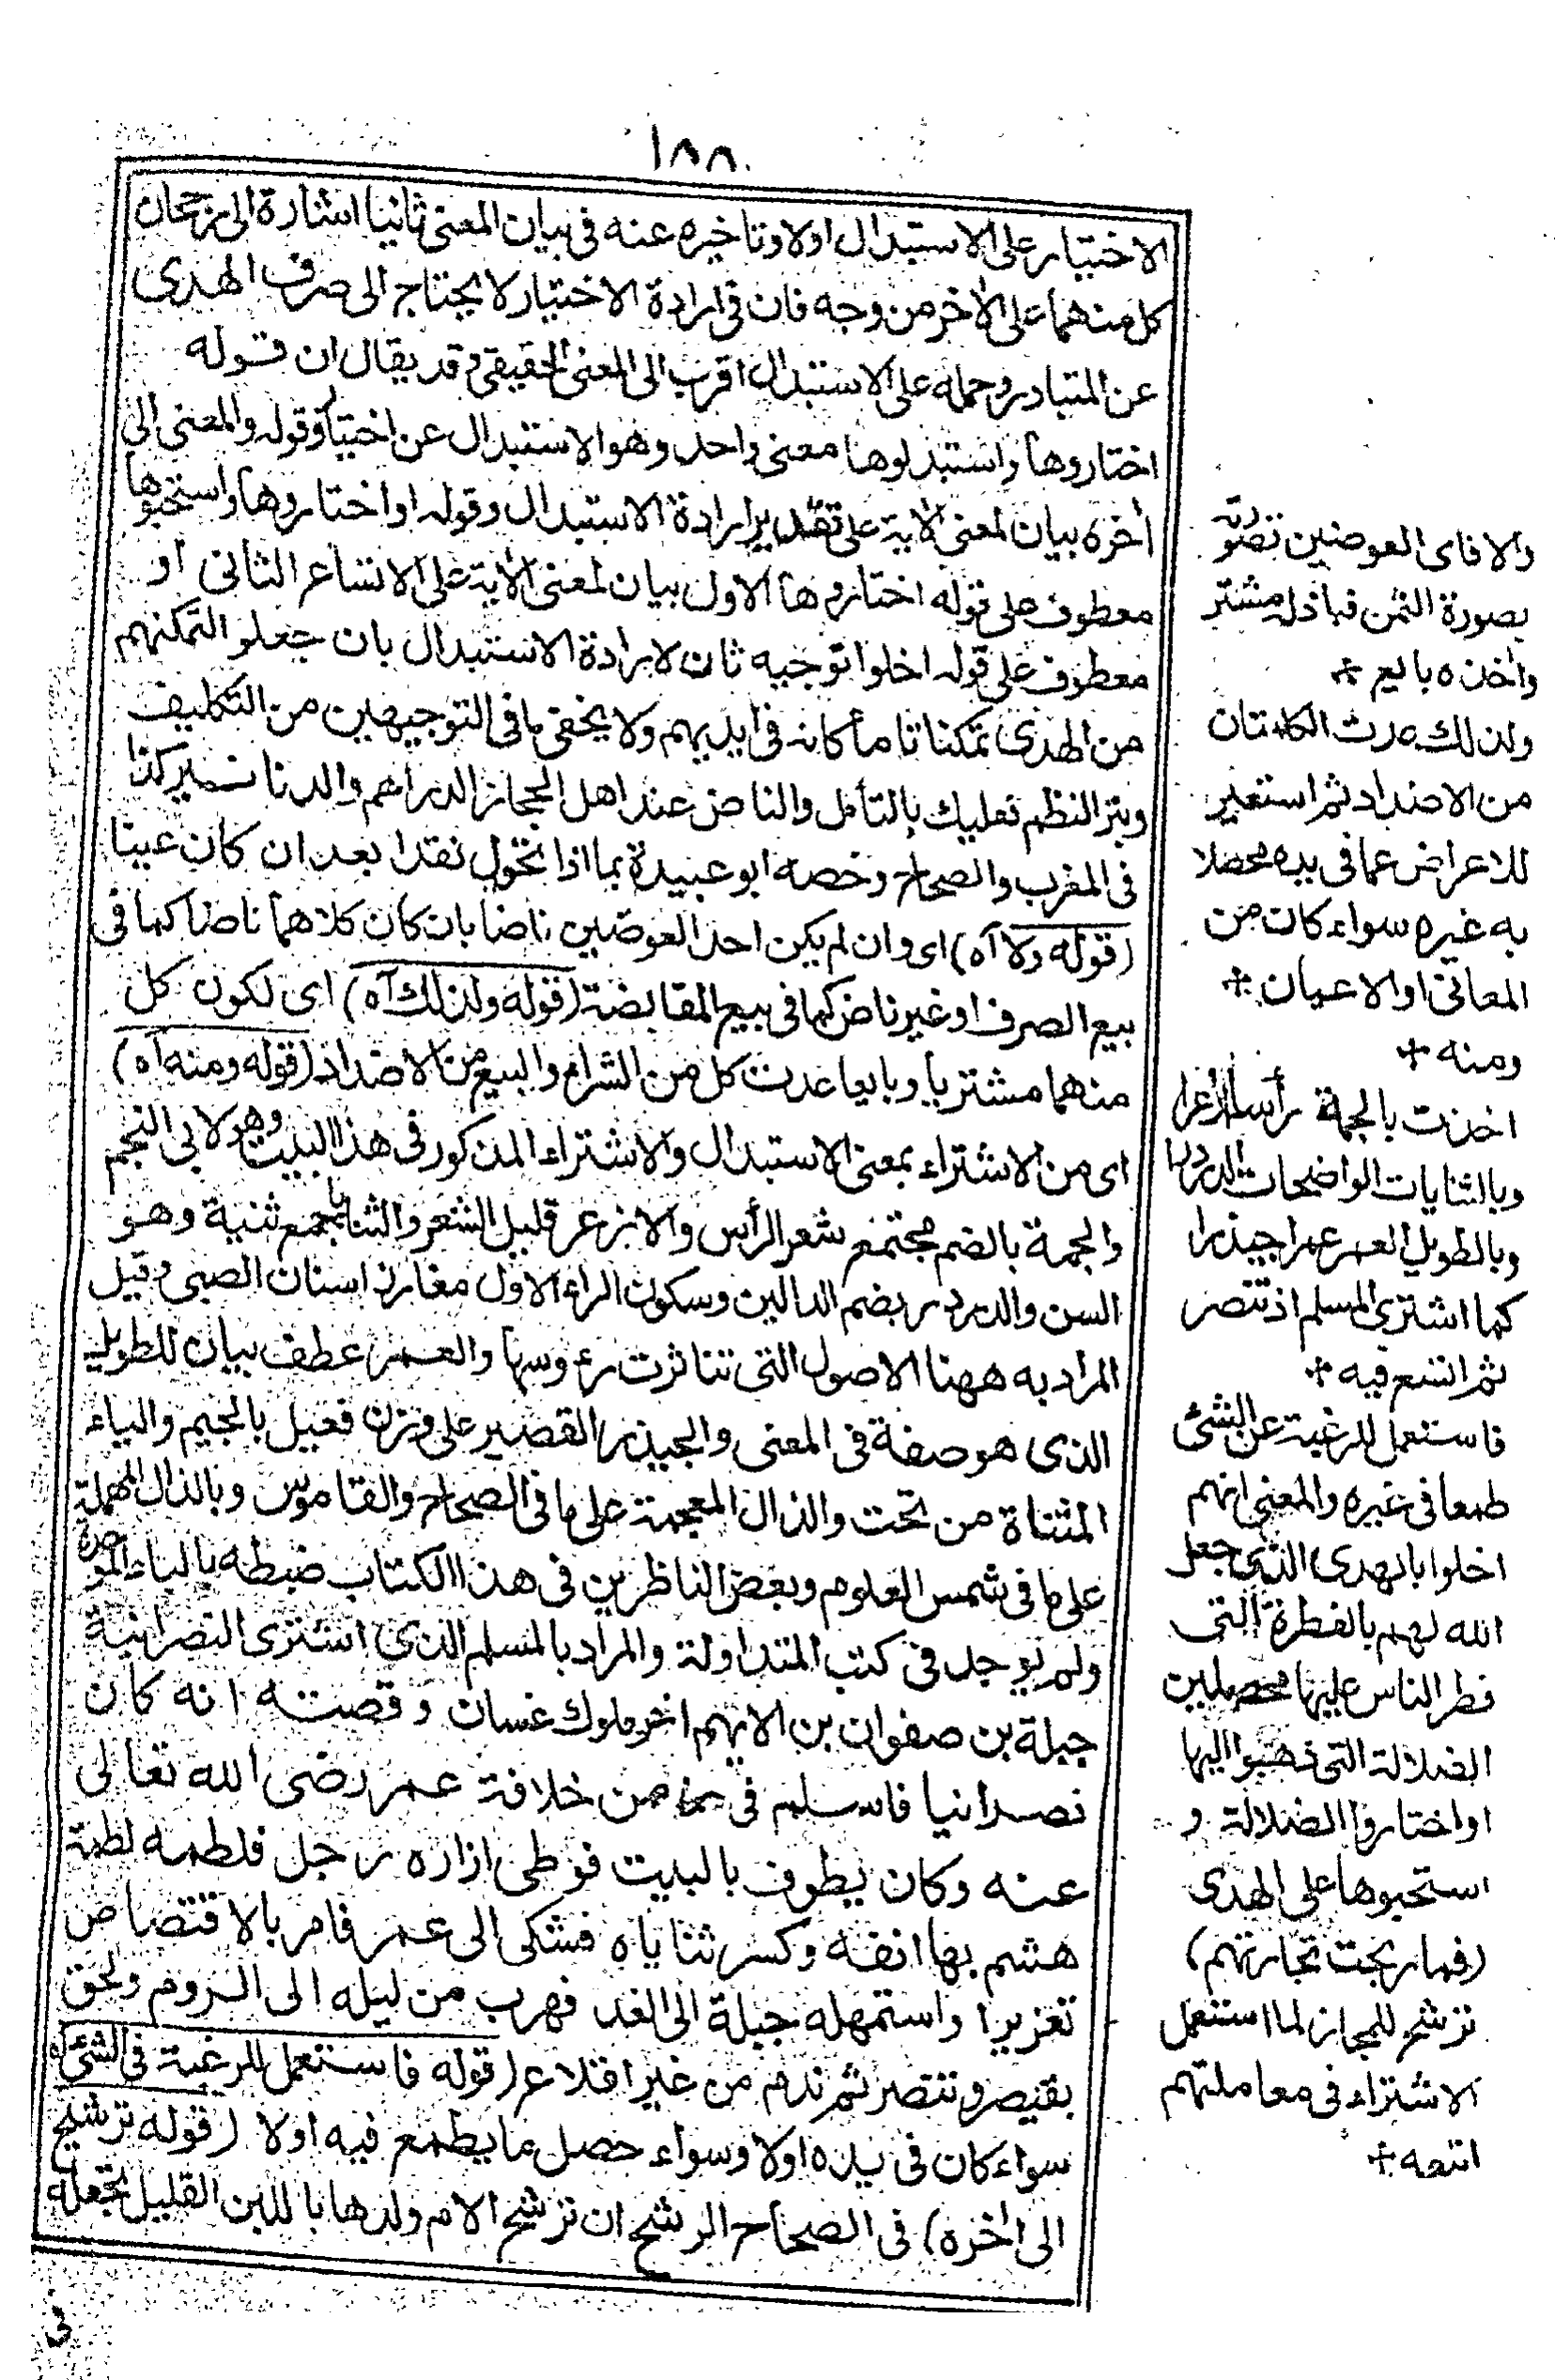 ١٨٨
الاختيار على الاستبدال اولا وتاخيره عنه فى بيان المعنى ثانيا اشارة الى رجحان
كل منهما على الاخر من وجه فان فى ارادة الاختيار لا يحتاج الى صرف الهدى
عن المتبادر وحمله على الاستبدال اقرب الى المعنى الحقيقى وقد يقال ان قوله
اختاروها واستبدلوها معنى واحد وهو الاستبدال عن اختيار وقوله والمعنى الى
أخره بيان لمعنى الاية على تقدير ارادة الاستبدال وقوله او اختاروها واستحبوها
معطوف على قوله اختاروها الاول بيان لمعنى الاية على الاتساع الثانى او
معطوف على قوله اخلوا توجيه ثان لارادة الاستبدال بان جعلوا لتمكنهم
من الهدى تمكنا تاما كانه فى ايديهم ولا يخفى ما فى التوجيهين من التكليف
وبتر النظم فعليك بالتأمل والناض عند اهل الحجاز الدراهم والدنانير كذا
فى المغرب والصحاح وخصه ابو عبيدة بما اذا تحول نقدا بعد ان كان عينا
(قوله ولا آه) اى وان لم يكن احد العوضين ناضا بان كان كلاهما ناضا كما فى
بيع الصرف او غير ناض كما فى بيع المقايضة (قوله ولذلك آه) اى لكون كل
منهما مشتريا وبايعا عدت كل من الشراء والبيع من الاضداد (قوله ومنه آه)
اى من الاشتراء بمعنى الاستبدال والاشتراء المذكور فى هذا البيت وهو لابى النجم
والجمة بالضم مجتمع شعر الرأس والازعر قليل الشعر والثنايا جمع ثنية وهو
السن والدردر بضم الدالين وسكون الراء الاول مغارز اسنان الصبى وقيل
المراد به ههنا الاصول التى تناثرت رءوسها والعمر عطف بيان للطويل
الذى هو صفة فى المعنى والجيذر القصير على وزن فعيل بالجيم والياء
المثناة من تحت والذال المعجمة على ما فى الصحاح والقاموس وبالدال المهملة
على ما فى شمس العلوم وبعض الناظرين فى هذا الكتاب ضبطه بالباء الموحدة
ولم يوجد فى كتب المتداولة والمراد بالمسلم الذى اشترى النصرانية
جبلة بن صفوان بن الايهم اخر ملوك غسان وقصته انه كان
نصرانيا فاسلم فى من خلافة عمر رضى الله تعالى
عنه وكان يطوف بالبيت فوطى ازاره رجل فلطمه لطمة
هشم بها انفه وكسر ثناياه فشكى الى عمر فامر بالاقتصاص
تعزيرا واستمهله جبلة الى الغد فهرب من ليله الى الروم ولحق
بقيصر وتنصر ثم ندم من غير اقلاع (قوله فاستعمل للرغبة فى الشئ آه)
سواء كان فى يده اولا وسواء حصل ما يطمع فيه اولا (قوله ترشيح
الى اخره) فى الصحاح الرشح ان ترشح الام ولدها باللبن القليل تجعله
فى
والا فاى العوضين تصورته
بصورة الثمن فباذله مشتر
واخذه بايع
ولذلك عدت الكلمتان
من الاضداد ثم استعير
للاعراض عما فى يده محصلا
به غيره سواء كان من
المعانى او الاعيان
ومنه
اخذت بالجمة رأسا ازعرا
وبالثنايات الواضحات الدردرا
وبالطويل العمر عمرا جيذرا
كما اشترى المسلم اذ تنصر
ثم اتسع فيه
فاستعمل للرغبة عن الشئ
طمعا فى غيره والمعنى انهم
اخلوا بالهدى الذى جعل
الله لهم بالفطرة التى
فطر الناس عليها محصلين
الضلالة التى ذهبوا اليها
او اختاروا الضلالة و
استحبوها على الهدى
(فما ربحت تجارتهم)
ترشيح للمجاز لما استعمل
الاشتراء فى معاملتهم
اتبعه